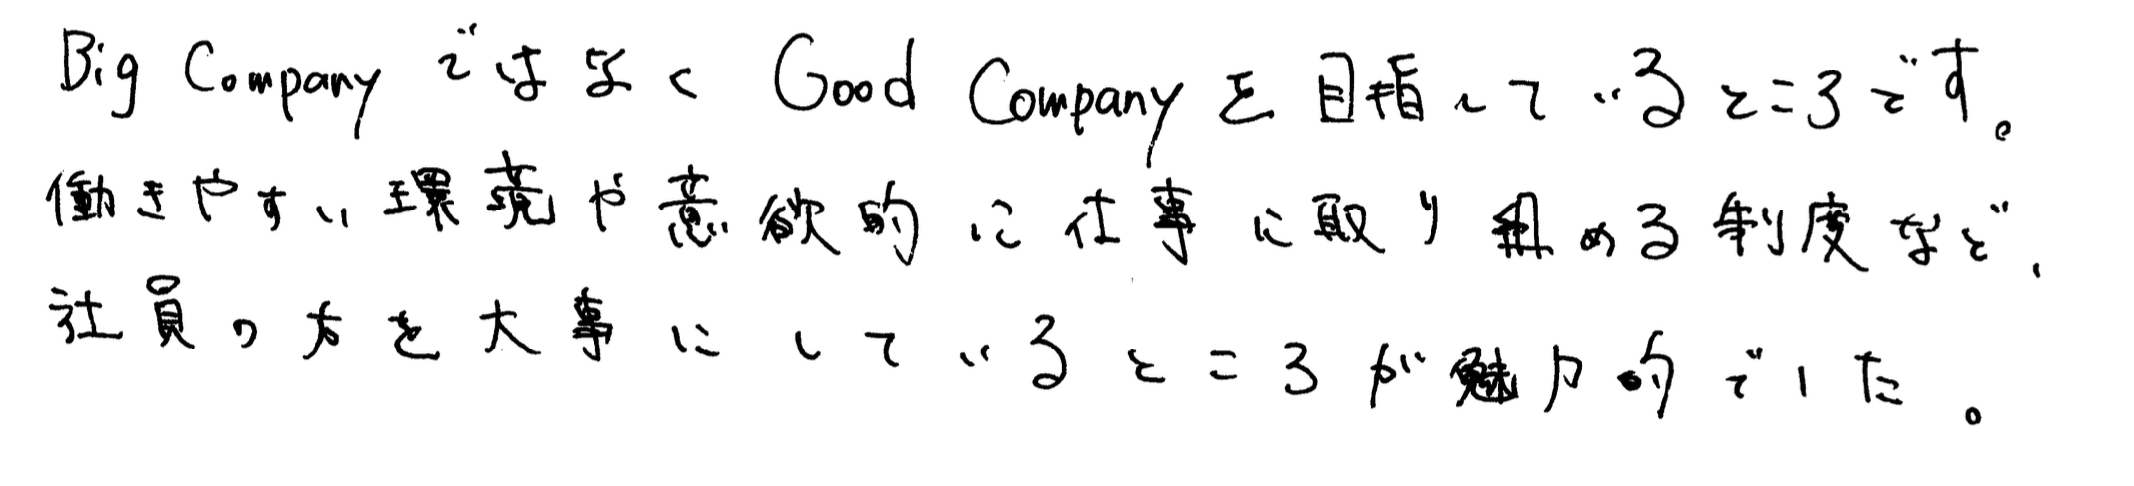 Big Companyではなく Good Companyを目指しているところです。
働きやすい環境や意欲的に仕事に取り組める制度など、
社員の方を大事にしているところが魅力的でした。